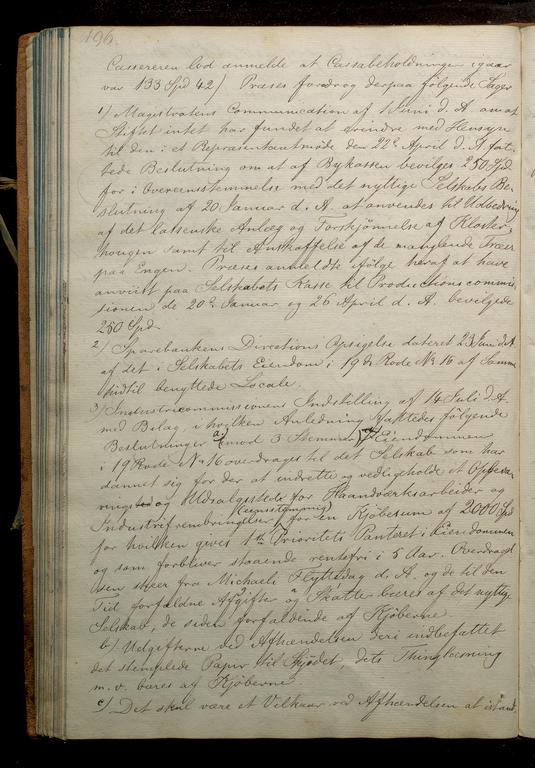 196.
Cassereren lod anmelde at Cassabeholdningen igaar
var 133 Spd 42 /. Præses fordrog derpaa følgende Sager
1) Magistratens Communication af 1 Juni d. A. om at
Stiftet intet har fundet at erindre med Hensyn
til den i et Repræsentantmøde den 22de April d. A. fat-
tede Beslutning om at af Bykassen bevilges 250 Spd.
for i Overeensstemmelse med det nyttige Selskabs Be-
slutning af 20 Januar d. A. at anvendes til Udbedring
af det lassenske Anlæg og Forskjønnelse af Kloster-
hougen samt til Anskaffelse af de manglende Træer
paa Engen. Præses anmeldte ifølge heraf at have
anviist paa Selskabets Kasse til Productionscommis-
sionen de 20de Januar og 26 April d. A. bevilgede
250 Spd.
2) Sparebankens Directions Opsigelse dateret 23 Juni d. A.
af det i Selskabets Eiendom i 19de Rode No 16 af Samme
hidtil benyttede Locale.
3) Industricommissionens Indstilling af 14 Juli d. A.
med Bilag, i hvilken Anledning fattedes følgende
Beslutninger a) (mod 3 Stemmer) at Eiendommen
i 19 Rode No 16 overdrages til det Selskab som har
dannet sig for der at indrette og vedligeholde et Opbeva-
rings og Udsalgssted for Haandværksarbeider og
Industrifrembringelser (eensstemmig) for en Kjøbesum af 2000 Spd
for hvilken gives 1ste Prioritets Panteret i Eiendommen
og som forbliver staaende rentefri i 5 Aar. Overdragel-
sen skeer fra Michaeli Flyttedag d. A. og de til den
Tid forfaldne Afgifter og Skatter bæres af det nyttige
Selskab, de siden forfaldende af Kjøberne.
b) Udgifterne ved Afhændelsen heri indbefattet
det stemplede Papir til Skjødet, dets Thinglæsning
m. v. bæres af Kjøberne.
c) Det skal være et Vilkaar ved Afhændelsen at